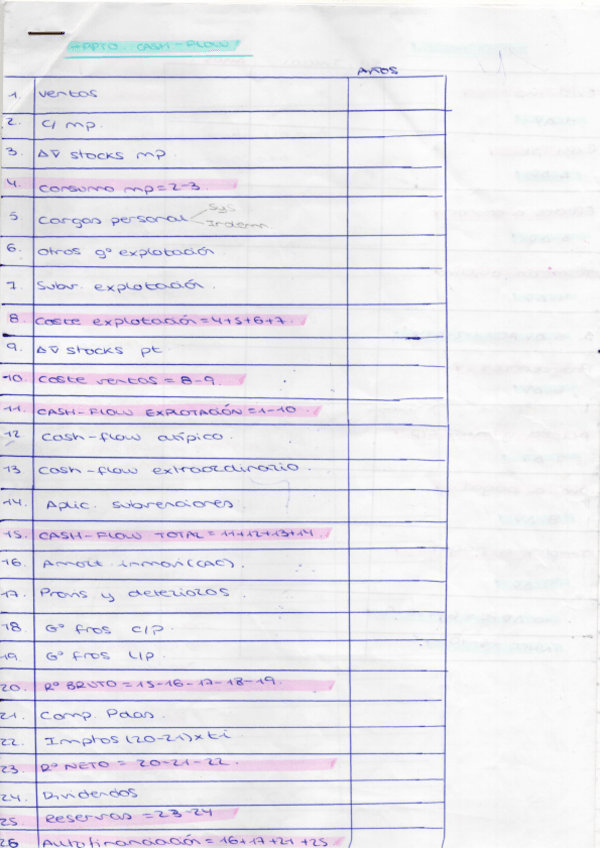 -PPTO. CASH-FLOW
AÑOS
1. Ventas
2. C/ mp.
3. Δ∇ stocks mp
4. Consumo mp=2-3.
5 Cargas personal
Sys
Indemn
6. Otros gº explotación
7. Subv. explotación.
8. Coste explotación=4+5+6+7.
9. Δ∇ stocks pt
10. Coste ventas = 8-9.
11. CASH-FLOW EXPLOTACIÓN=1-10
12 Cash-flow atípico.
13 Cash-flow extraordinario.
14. Aplic. subvenciones.
15. CASH-FLOW TOTAL=11+12+13+14.
16. Amort. inmov(CAC)
17. Provns y deterioros.
18 Gº fros C/P.
19. Gº fros L/P
20. Rº BRUTO=15-16-17-18-19.
21. Comp. Pdas.
22. Imptos (20-21)xti
23. Rº NETO = 20-21-22.
24. Dividendos
25. Reservas =23-24
26 Autofinanciación=16+17+21+25